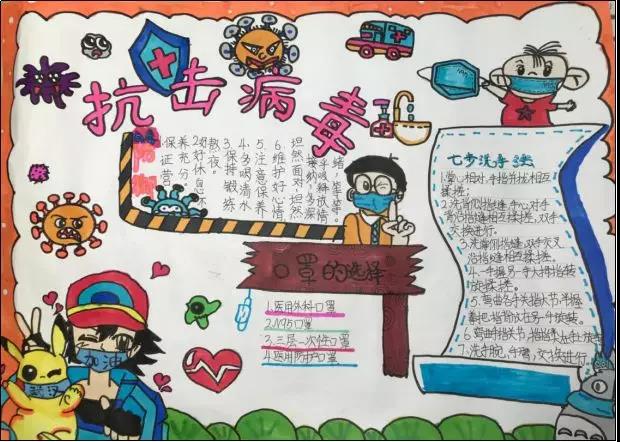 抗击病毒
防御
1.保证营
养充分。
2.好好休息不
熬夜。
3.保持锻炼
4.多喝清水
5.注意保养
6.维护好心情
坦然面对,坦然
口罩的选择
1.医用外科口罩
2.N95口罩
3.三层一次性口罩
4.医用防护口罩
七步洗手
1.掌心相对,手指并拢相互
揉搓;
2.洗背侧指缝,手心对手
背沿指缝相互揉搓,双手
交换进行。
3.洗掌侧指缝,双手交叉
沿指缝相互揉搓。
4.一手握另一手大拇指旋转
揉搓。
5.弯曲各手指关节,半握
拳把指背放在另一手旋转。
6.弯曲手指关节,指尖
7.洗手腕,手臂,交换进行。
加油
武汉